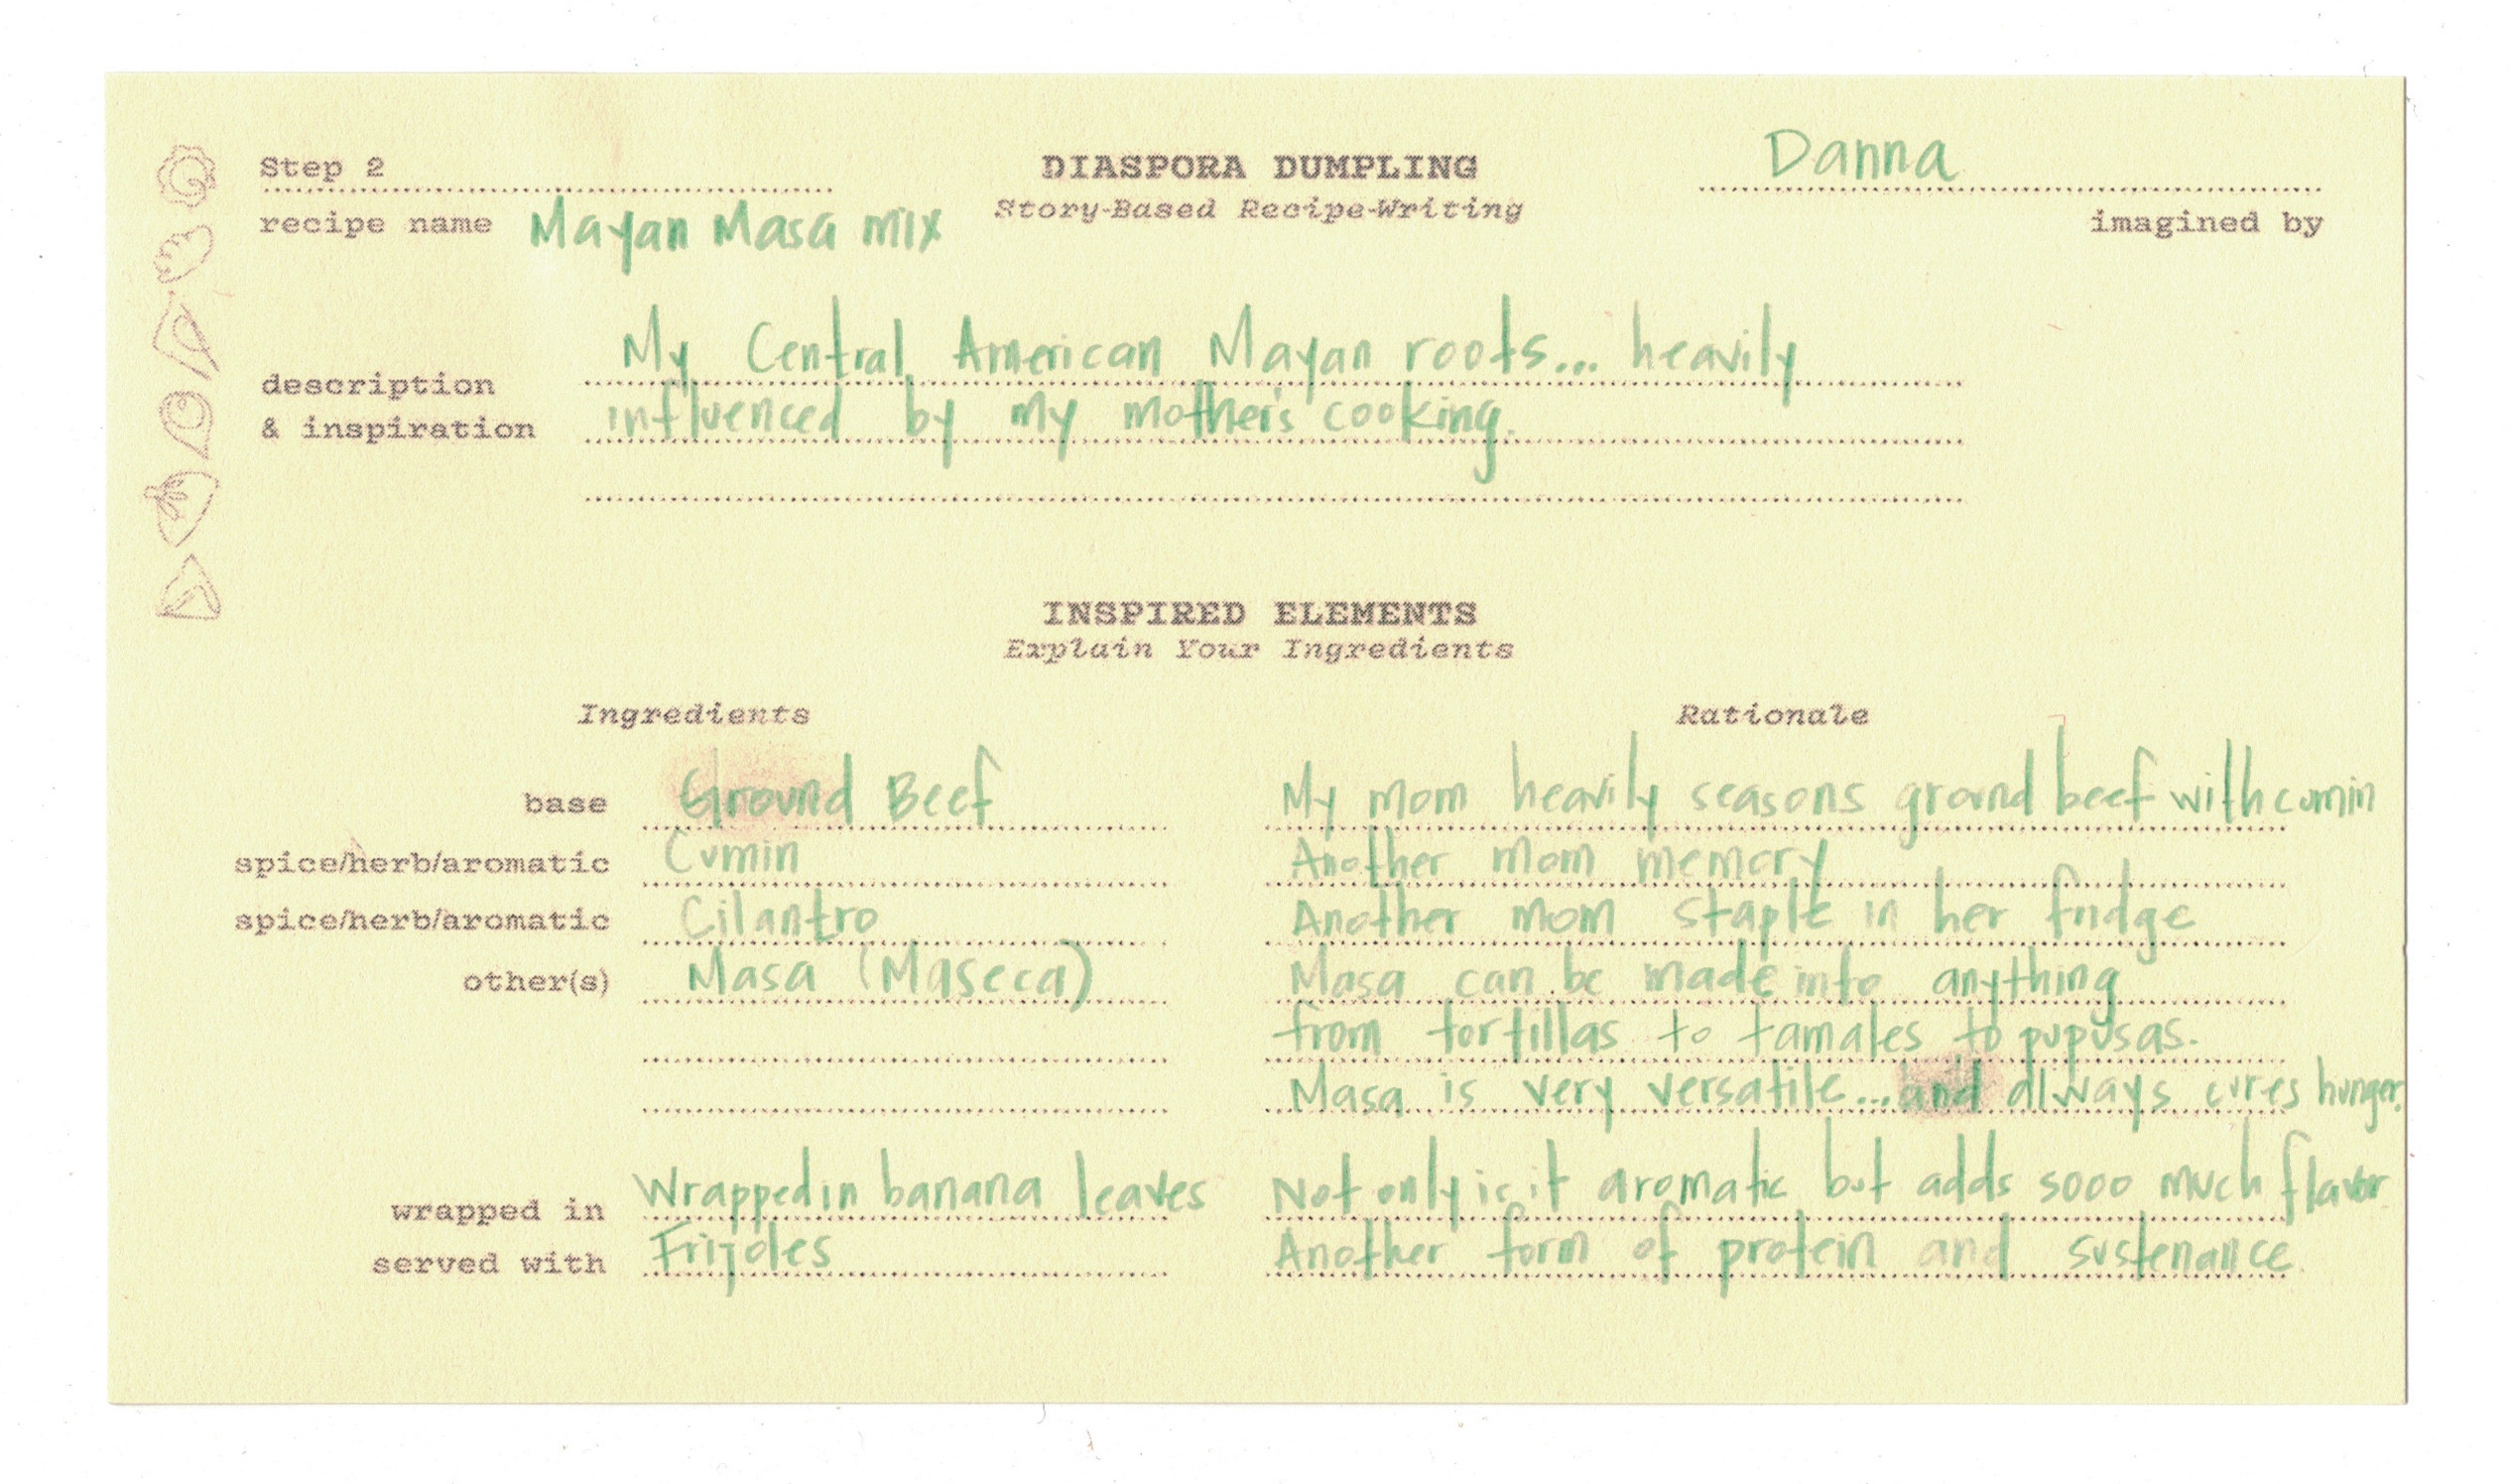 Step 2
DIASPORA DUMPLING
Danna
recipe name Mayan Masa mix
Story-Based Recipe-Writing
imagined by
My Central American Mayan roots... heavily
description
influenced by my mother's cooking.
& inspiration
INSPIRED ELEMENTS
Explain Your Ingredients
Ingredients Rationale
base Ground Beef My mom heavily seasons ground beef with cumin
spice/herb/aromatic Cumin Another mom memory
spice/herb/aromatic Cilantro Another mom staple in her fridge
other(s) Masa (Maseca) Masa can be made into anything
from tortillas to tamales to pupusas.
Masa is very versatile... and always cures hunger.
wrapped in Wrapped in banana leaves Not only is it aromatic but adds sooo much flavor
served with Frijoles Another form of protein and sustenance.